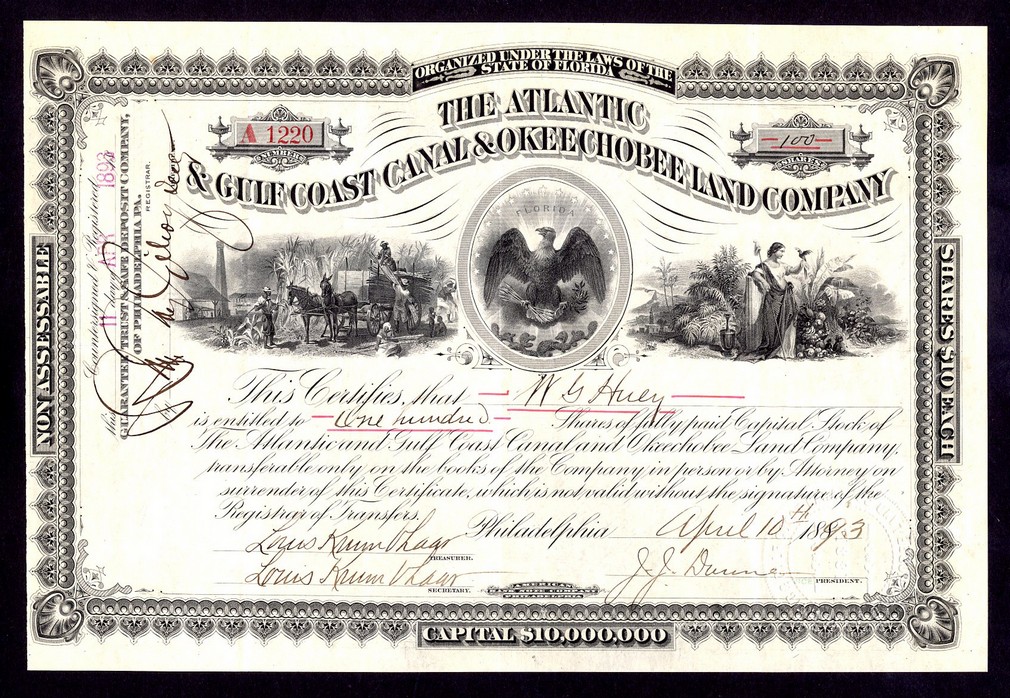 ORGANIZED UNDER THE LAWS OF THE
STATE OF FLORIDA
THE ATLANTIC
& GULF COAST CANAL & OKEECHOBEE LAND COMPANY
A 1220
NUMBER
100
SHARES
FLORIDA
NON ASSESSABLE
SHARES $10 EACH
Countersigned & Registered
this 11 day APR 1893
GUARANTEE TRUST & SAFE DEPOSIT COMPANY,
OF PHILADELPHIA PA.
REGISTRAR.
This Certifies, that W G Huey
is entitled to One hundred Shares of fully paid Capital Stock of
The Atlantic and Gulf Coast Canal and Okeechobee Land Company,
transferable only on the books of the Company, in person or by Attorney on
surrender of this Certificate, which is not valid without the signature of the
Registrar of Transfers.
Philadelphia April 10th 1893
Louis
TREASURER.
Louis
SECRETARY.
J. J. Dunne
VICE PRESIDENT.
AMERICAN
BANK NOTE COMPANY
PHILADELPHIA
CAPITAL $10,000,000